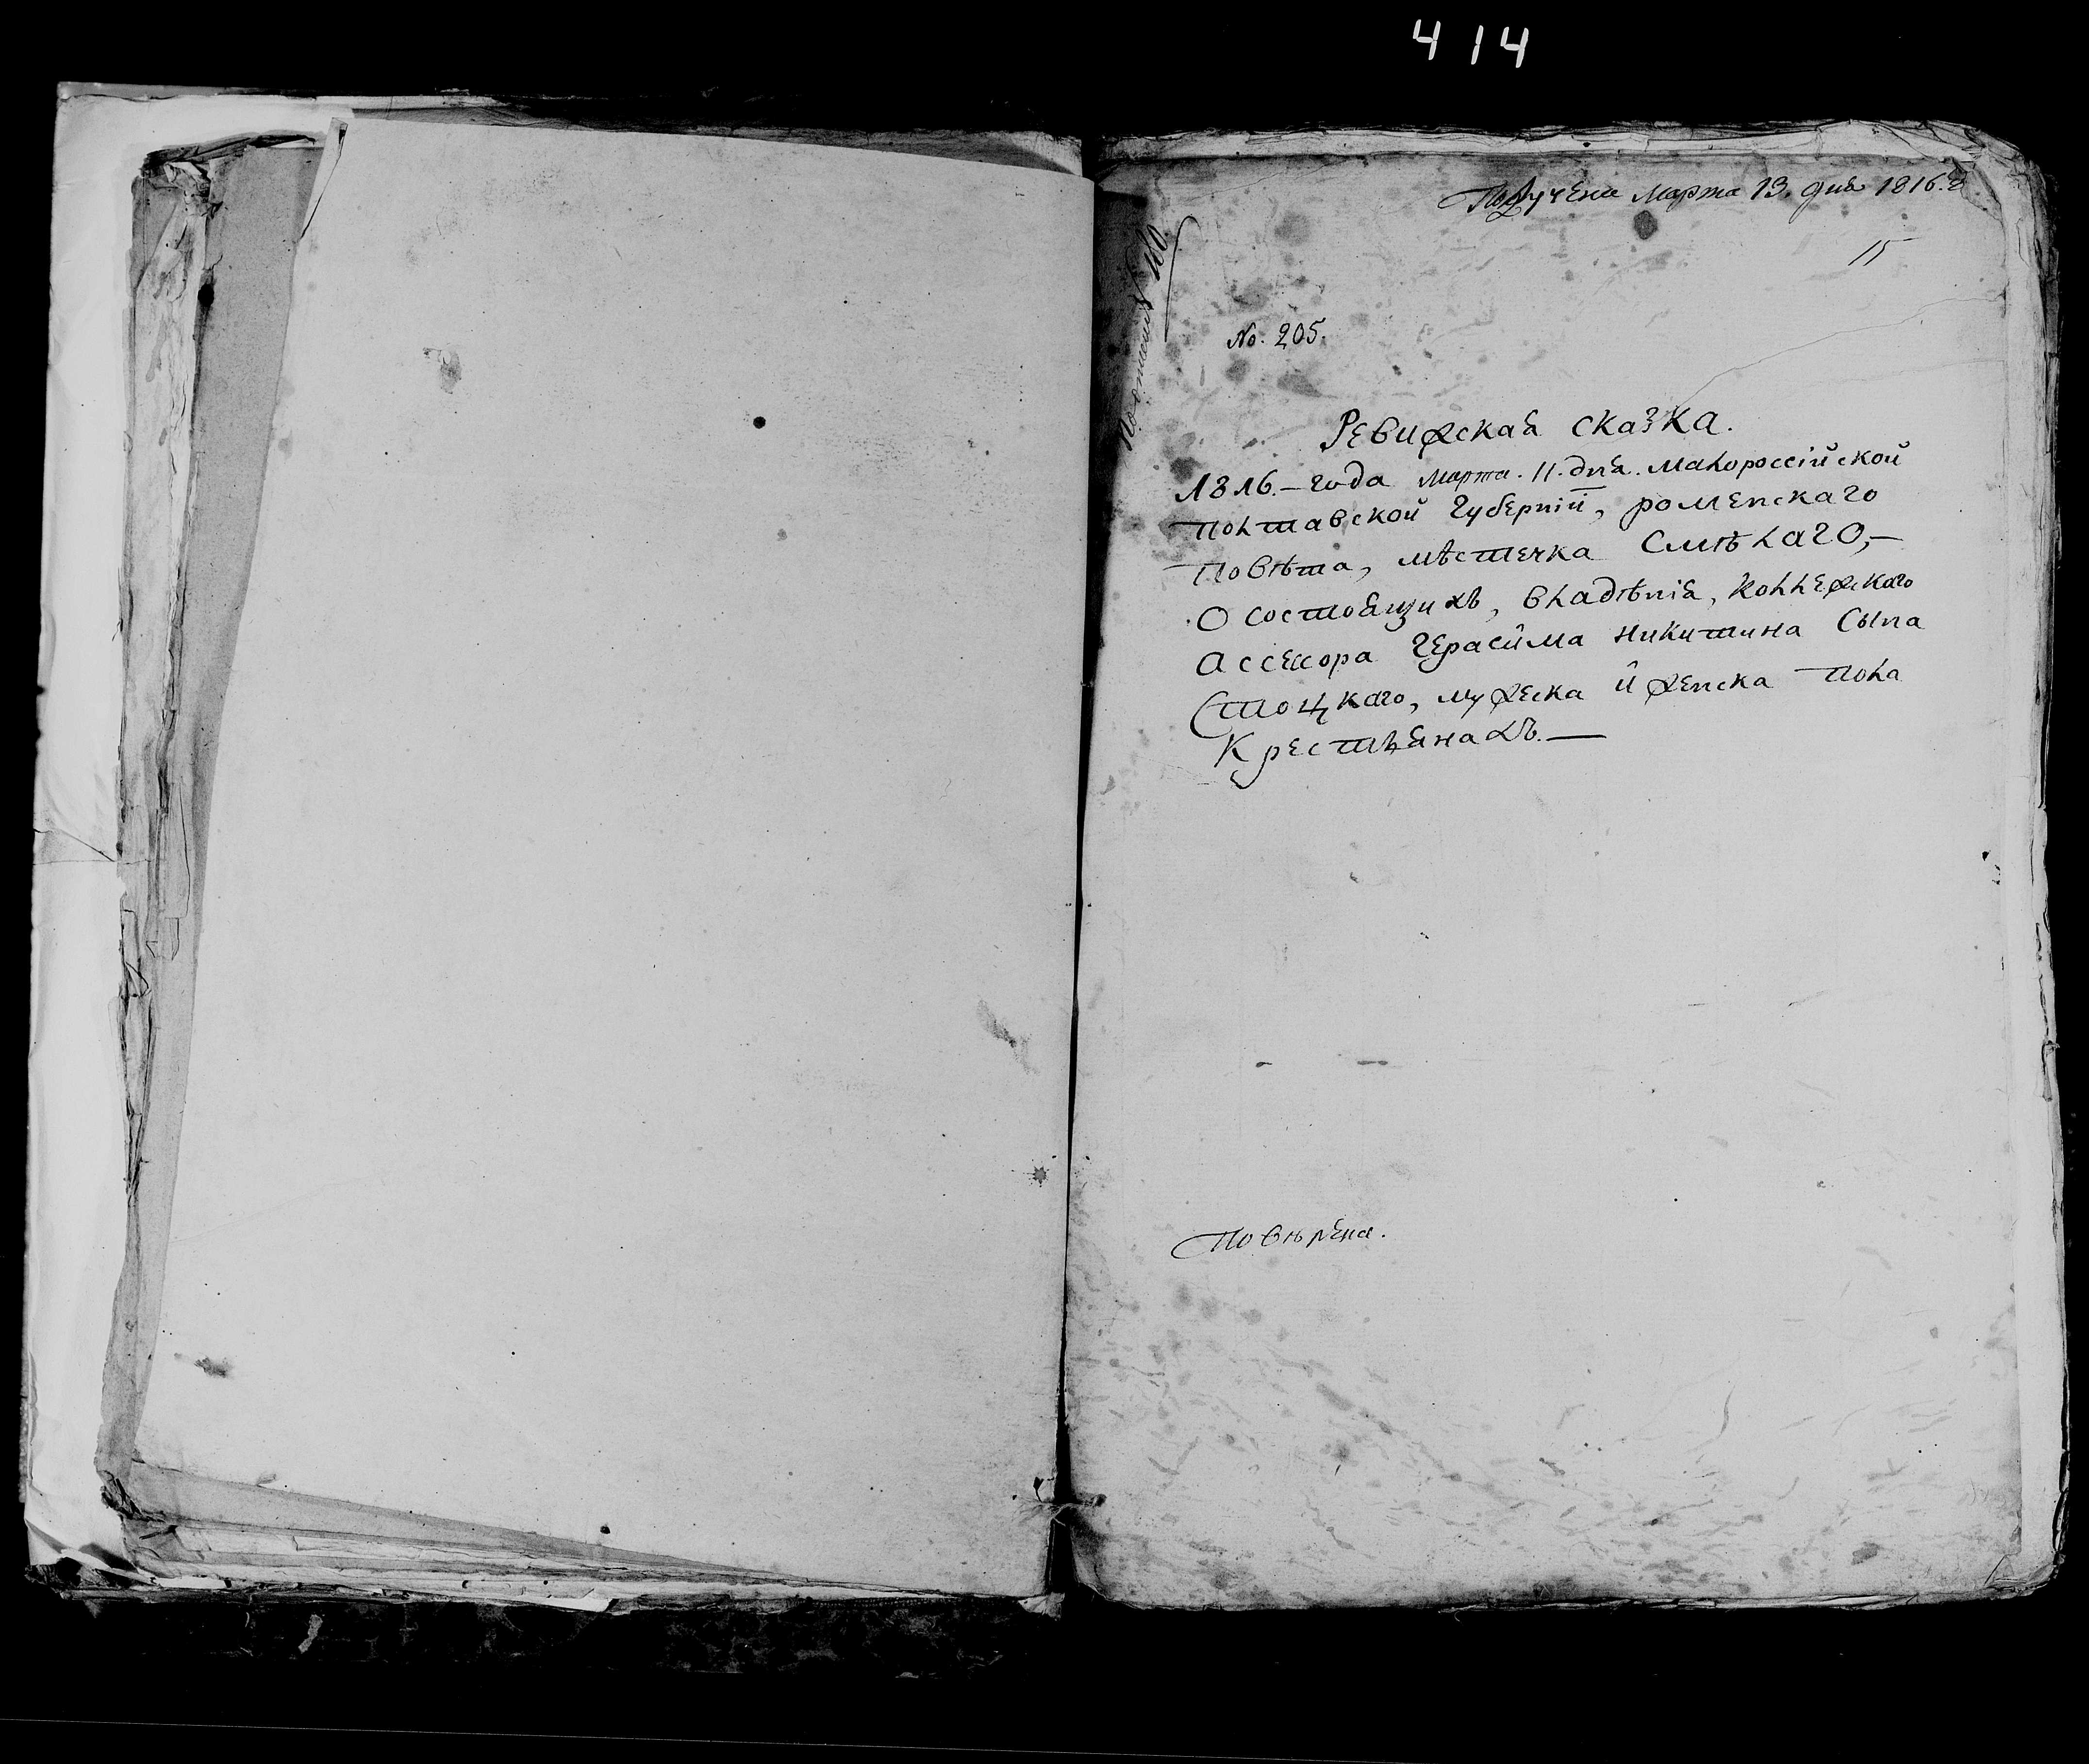 414
Получена марта 13. дня 1816. г
15
No. 205.
Ревижская сказка.
1816.-года марта. 11. дня. Малороссїйской
Полтавской губернїи, роменскаго
Повѣта, мѣстечка Смѣлаго,-
О состоящихъ, владѣнїя, Коллежскаго
Ассессора Герасима Никитина Сына
Стоцкаго, мужеска и женска Пола
Крестьянахъ.—
Повѣрена.